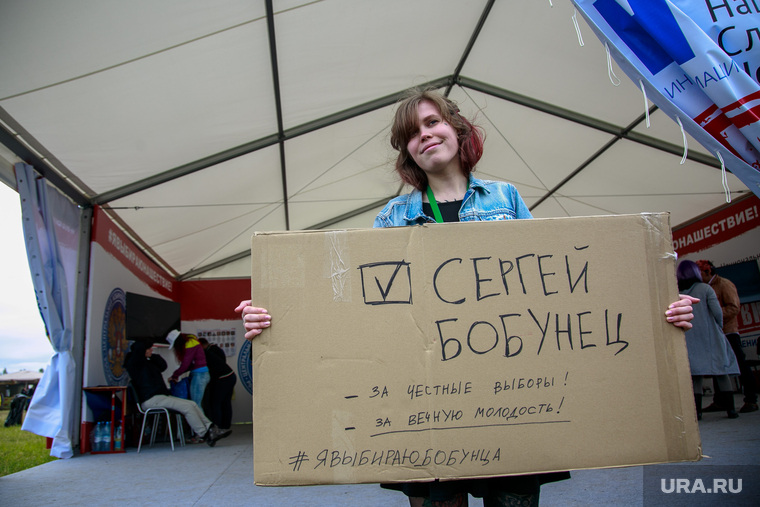 На
Сл
ИН МАЦИ
#ЯВЫБИРАЮНАШЕСТВИЕ
НАШЕСТВИЕ!
СЕРГЕЙ
БОБУНЕЦ
- ЗА ЧЕСТНЫЕ ВЫБОРЫ!
- ЗА ВЕЧНУЮ МОЛОДОСТЬ!
#ЯВЫБИРАЮБОБУНЦА
URA.RU